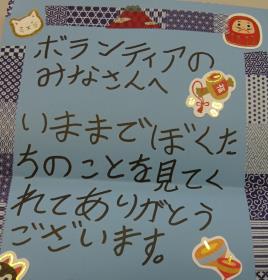 ボランティアの
みなさんへ
いままでぼくた
ちのことを見てく
れてありがとう
ございます。